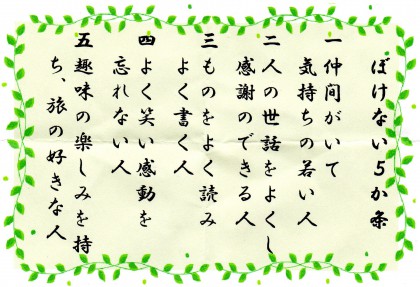 ぼけない5か条
一 仲間がいて
気持ちの若い人
二 人の世話をよくし
感謝のできる人
三 ものをよく読み
よく書く人
四 よく笑い感動を
忘れない人
五 趣味の楽しみを持
ち、旅の好きな人